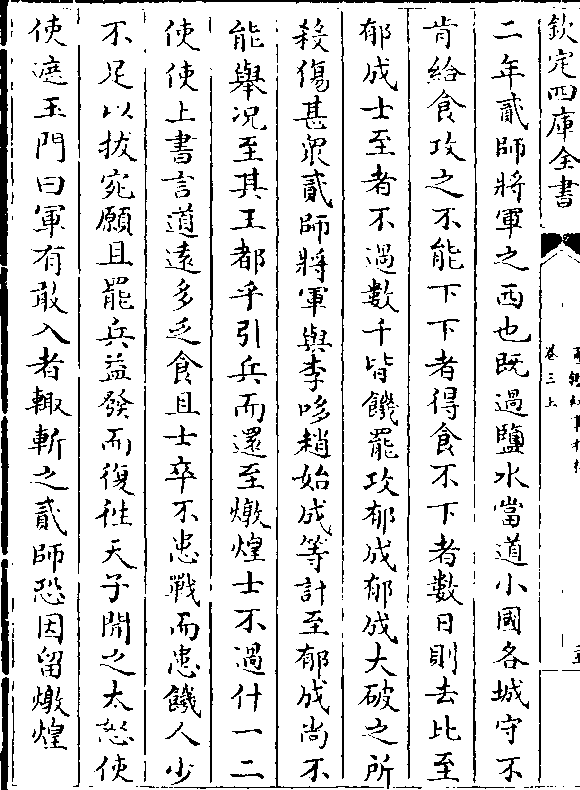 欽定四庫全書
卷三上
二年貳師將軍之西也既過鹽水當道小國各城守不
肯給食攻之不能下下者得食不下者數日則去比至
郁成士至者不過數千皆饑罷攻郁成郁成大破之所
殺傷甚衆貳師將軍與李哆趙始成等計至郁成尚不
能舉况至其王都乎引兵而還至燉煌士不過什一二
使使上書言道遠多乏食且士卒不患戰而患饑人少
不足以拔宛願且罷兵益發而復往天子聞之大怒使
使遮玉門曰軍有敢入者輙斬之貳師恐因留燉煌